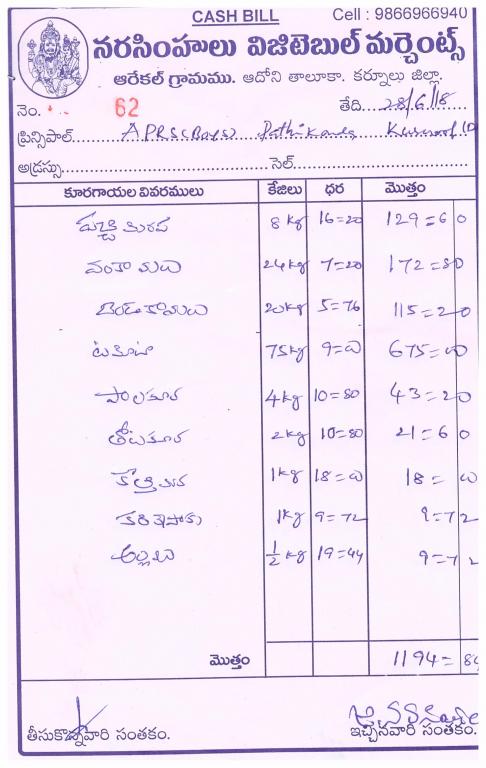 CASH BILL Cell : 9866966940
నరసింహలు విజిటెబుల్ మర్చెంట్స్
ఆరేకల్ గ్రామము. ఆదోని తాలూకా. కర్నూలు జిల్లా.
నెం. 62 తేది...28/6/18
ప్రిన్సిపాల్ APRS(Boys)
అడ్రస్సు సెల్
కూరగాయల వివరములు కేజీలు ధర మొత్తం
పచ్చి మిరప 8 kg 16=20 129=60
వంకాయ 24 kg 7=20 172=80
బెండకాయ 20 kg 5=76 115=20
టమోటా 75 kg 9=00 675=00
పాలకూర 4 kg 10=80 43=20
తోటకూర 2 kg 10=80 21=60
కొత్తిమీర 1 kg 18=00 18=00
కరివేపాకు 1 kg 9=72 9=72
అల్లం ½ kg 19=44 9=72
మొత్తం 1194=84
తీసుకొన్నవారి సంతకం. ఇచ్చినవారి సంతకం.